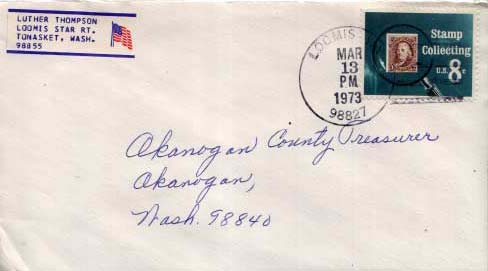 LUTHER THOMPSON
LOOMIS STAR RT.
TONASKET, WASH.
98855
LOOMIS
MAR
13
PM
1973
98827
Stamp
Collecting
U.S. 8c
Okanogan County Treasurer
Okanogan,
Wash. 98840